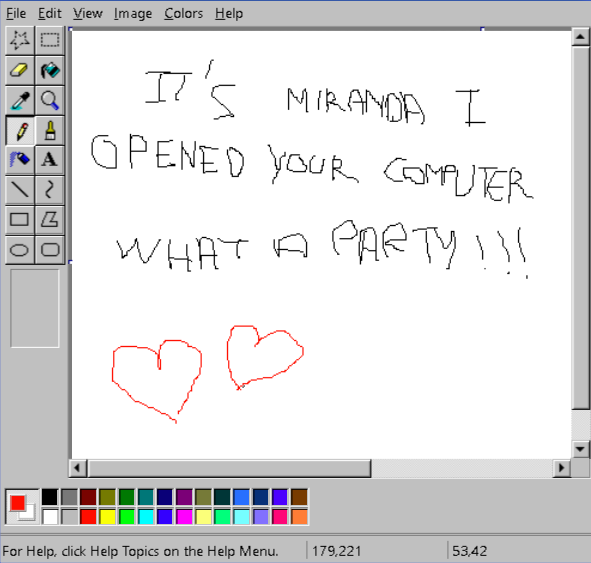 File Edit View Image Colors Help
A
IT'S MIRANDA I
OPENED YOUR COMPUTER
WHAT A PARTY!!!
For Help, click Help Topics on the Help Menu. 179,221 53,42